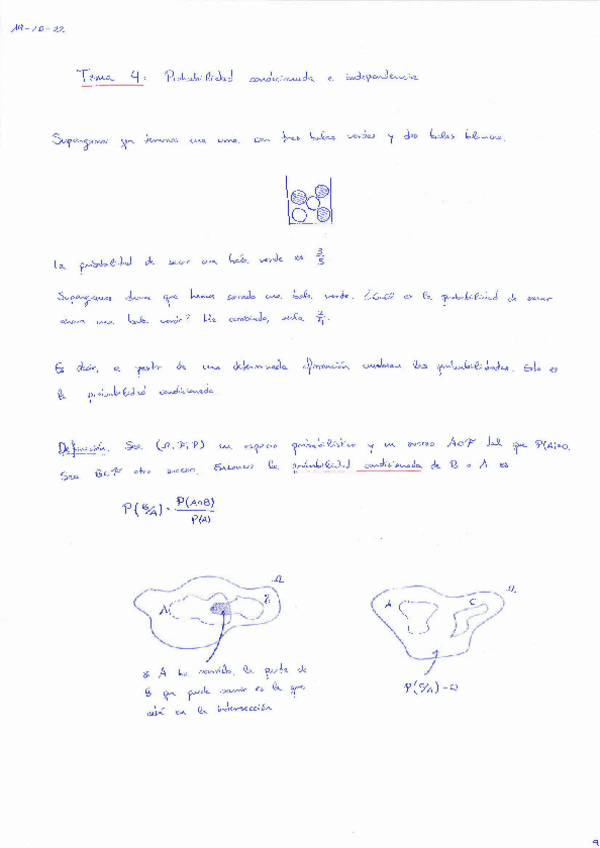 19-10-22.
Tema 4: Probabilidad condicionada e independencia
Supongamos que tenemos una urna con tres bolas verdes y dos bolas blancas.
La probabilidad de sacar una bola verde es 3/5
Supongamos ahora que hemos sacado una bola verde. ¿Cuál es la probabilidad de sacar
ahora una bola verde? Ha cambiado, sería 2/4.
Es decir, a partir de una determinada información cambian las probabilidades. Esto es
la probabilidad condicionada.
Definición. Sea (Ω, F, P) un espacio probabilístico y un suceso A∈F tal que P(A)>0.
Sea B∈F otro suceso. Entonces la probabilidad condicionada de B a A es
P(B/A) = P(A∩B) / P(A)
Ω
A
B
Ω
A
C
si A ha ocurrido, la parte de
B que puede ocurrir es la que
está en la intersección
P(C/A) = 0